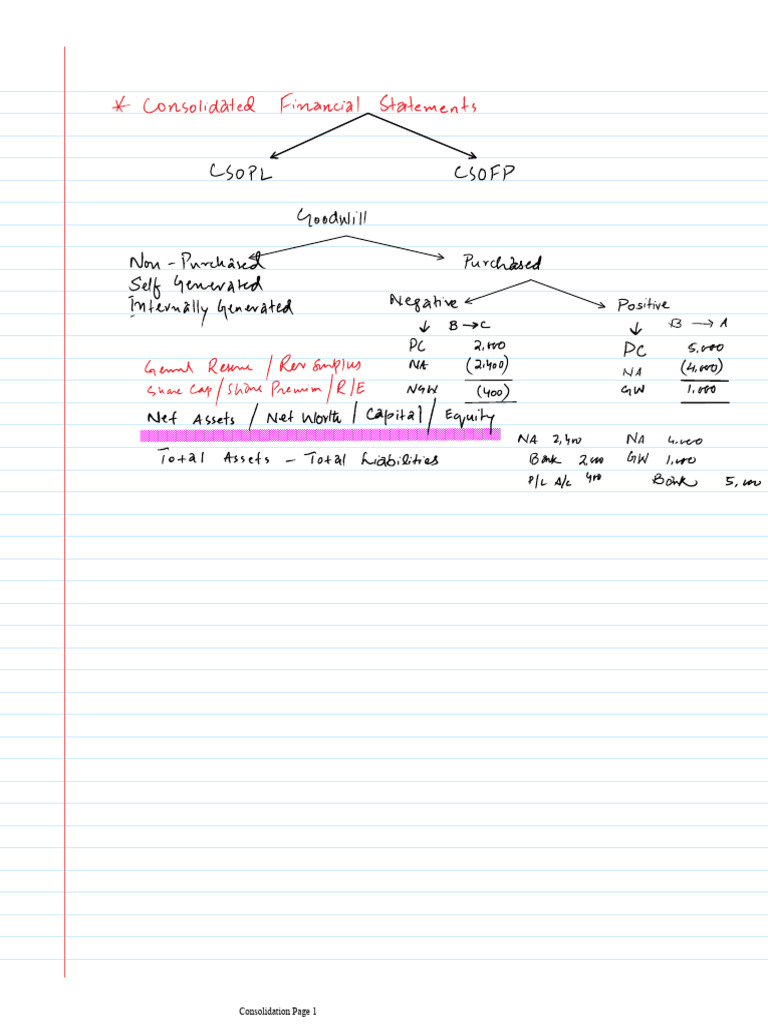 * Consolidated Financial Statements
CSOPL CSOFP
Goodwill
Non-Purchased Purchased
Self Generated
Internally Generated Negative Positive
B → C B → A
PC 2,000 PC 5,000
General Reserve / Rev Surplus NA (2,400) NA (4,000)
Share Cap / Share Premium / R/E NGW (400) GW 1,000
Net Assets / Net Worth / Capital / Equity
NA 2,400 NA 4,000
Total Assets - Total Liabilities Bank 2,000 GW 1,000
P/L A/c 400 Bank 5,000
Consolidation Page 1